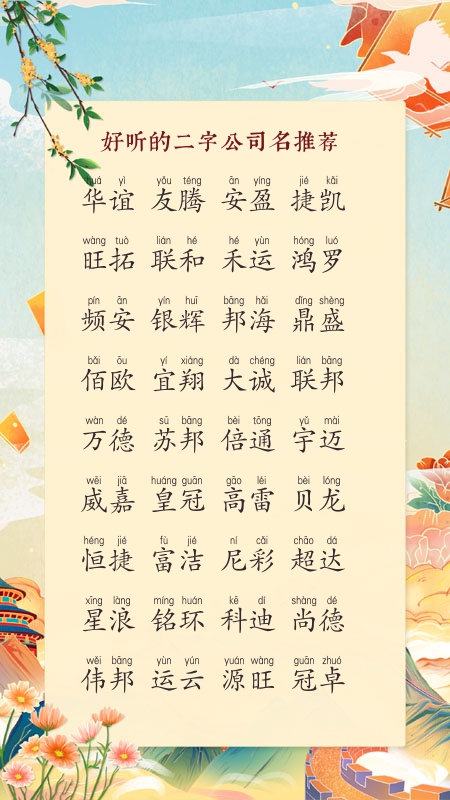 好听的二字公司名推荐
huá yì yǒu téng ān yíng jié kǎi
华谊 友腾 安盈 捷凯
wàng tuò lián hé hé yùn hóng luó
旺拓 联和 禾运 鸿罗
pín ān yín huī bāng hǎi dǐng shèng
频安 银辉 邦海 鼎盛
bǎi ōu yí xiáng dà chéng lián bāng
佰欧 宜翔 大诚 联邦
wàn dé sū bāng bèi tōng yǔ mài
万德 苏邦 倍通 宇迈
wēi jiā huáng guān gāo léi bèi lóng
威嘉 皇冠 高雷 贝龙
héng jié fù jié ní cǎi chāo dá
恒捷 富洁 尼彩 超达
xīng làng míng huán kē dí shàng dé
星浪 铭环 科迪 尚德
wěi bāng yùn yún yuán wàng guān zhuó
伟邦 运云 源旺 冠卓